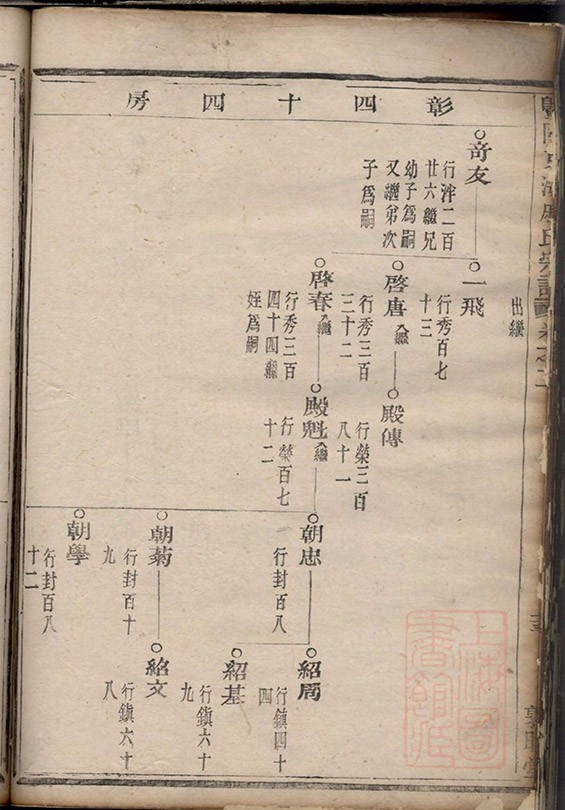 彰四十四房
出繼
奇友
行泮二百
廿六繼兄
幼子爲嗣
又繼弟次
子爲嗣
一飛
行秀百七
十三
啓唐入繼
行秀三百
三十二
啓春入繼
行秀三百
四十四繼
姪爲嗣
殿傳
行榮三百
八十一
殿魁入繼
行榮百七
十二
朝忠
行封百八
朝菊
行封百十
九
朝學
行封百八
十二
紹周
行鎮四十
四
紹基
行鎮六十
九
紹文
行鎮六十
八
上海圖
書館